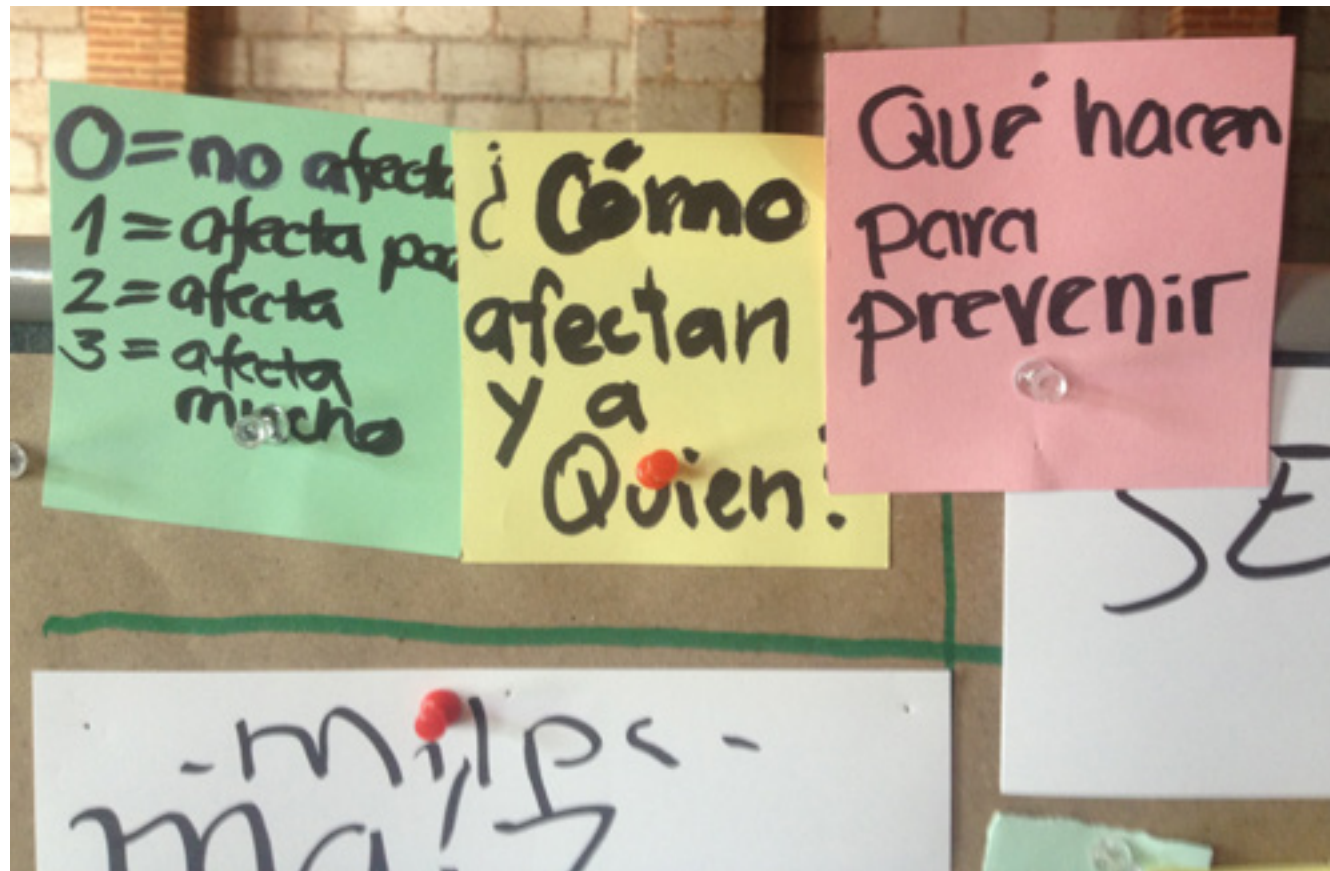 0=no afecta
1=afecta poc
2=afecta
3=afecta
mucho
¿Cómo
afectan
y a
Quien?
Qué hacen
para
prevenir
SE
-milpa-
maíz